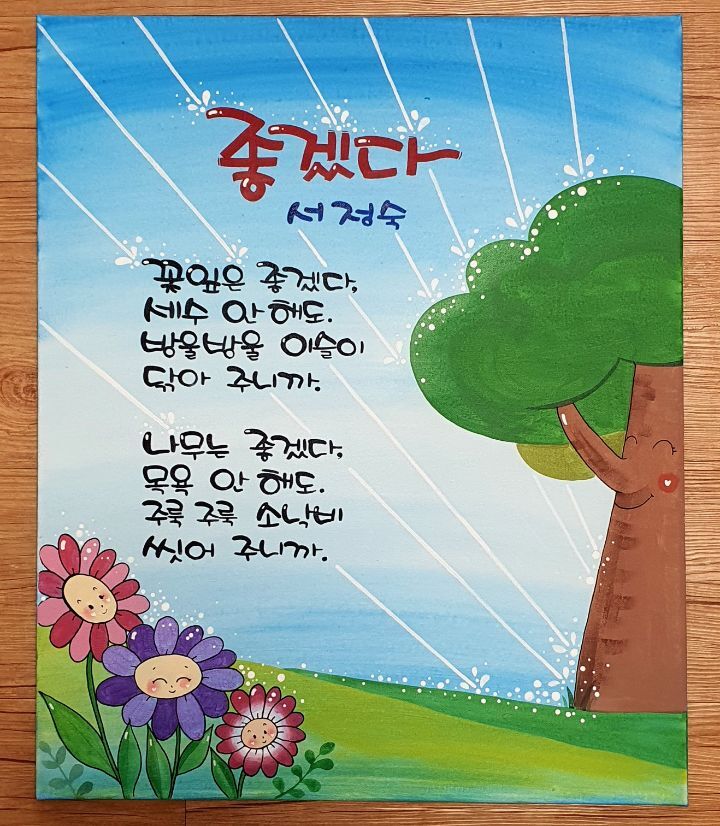 좋겠다
서정숙
꽃잎은 좋겠다,
세수 안 해도.
방울방울 이슬이
닦아 주니까.
나무는 좋겠다,
목욕 안 해도.
주룩주룩 소낙비
씻어 주니까.